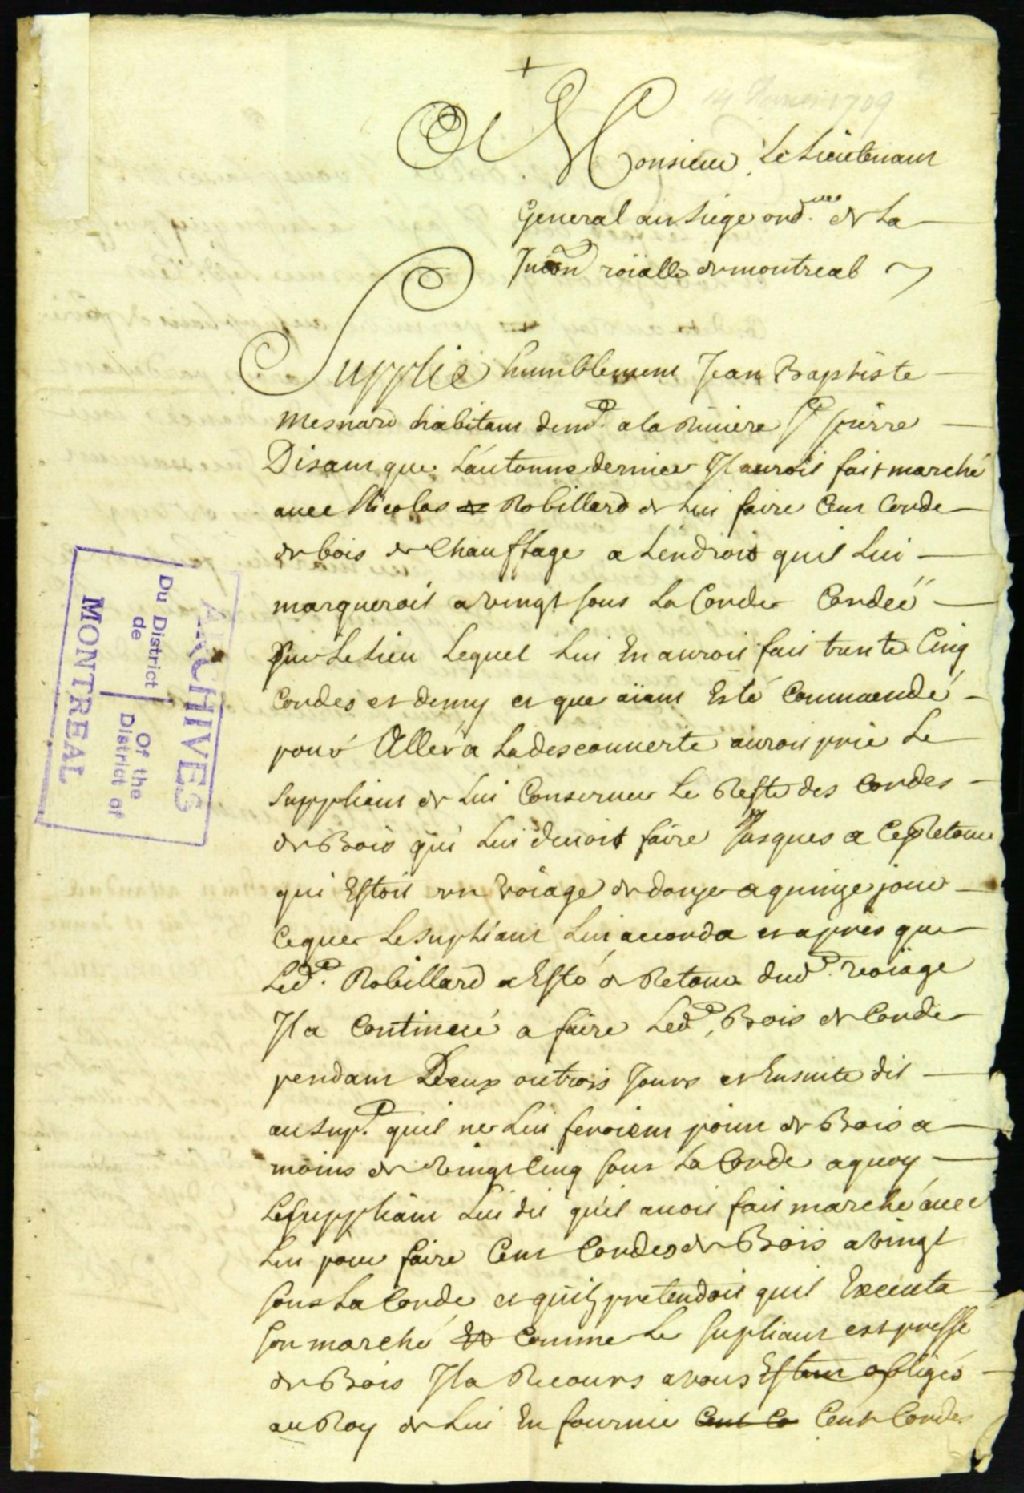 14 Janvier 1709
A Monsieur Le Lieutenant
General au siege ord.re de La
Jur.on roialle de montreal
Supplie humblement Jean Baptiste
Mesnard habitant dem.t a la Riviere St pierre
Disant que Lautonne dernier Il auroit fait marché
avec Nicolas Robillard de Lui faire Cent Corde
de bois de Chauffage a Lendroit quil Lui
marqueroit a vingt sous La Corde Cordeé
sur Le Lieu Lequel Lui En auroit fait trante Cinq
Cordes et demy et que aiant Esté Commaendé
pour Aller a La descouverte auroit prié Le
suppliant de Lui Conserver Le Reste des Cordes
de Bois qui Lui devoit faire Jusques a Ce Retour
qui Estoit un voiage de douze a quinze jour
Ce que Le supliant Lui accorda et apres que
Led.t Robillard a Esté de Retour dud.t voiage
Il a Continué a faire Led.t Bois de Corde
pendant Deux ou trois Jours et Ensuite dit
au sup.t quil ne Lui feroient point de Bois a
moins de vingt Cinq sous La Corde a quoy
Le suppliant Lui dit quil avoit fait marché avec
Lui pour faire Cent Cordes de Bois a vingt
sous La Corde et quil pretendoit quil Executa
son marché Et Comme Le supliant est pressé
de Bois Il a Recours a vous Estant obligé
au Roy de Lui En fournir Cent Co Cent Cordes
ARCHIVES
Du District | Of the
de | District of
MONTREAL